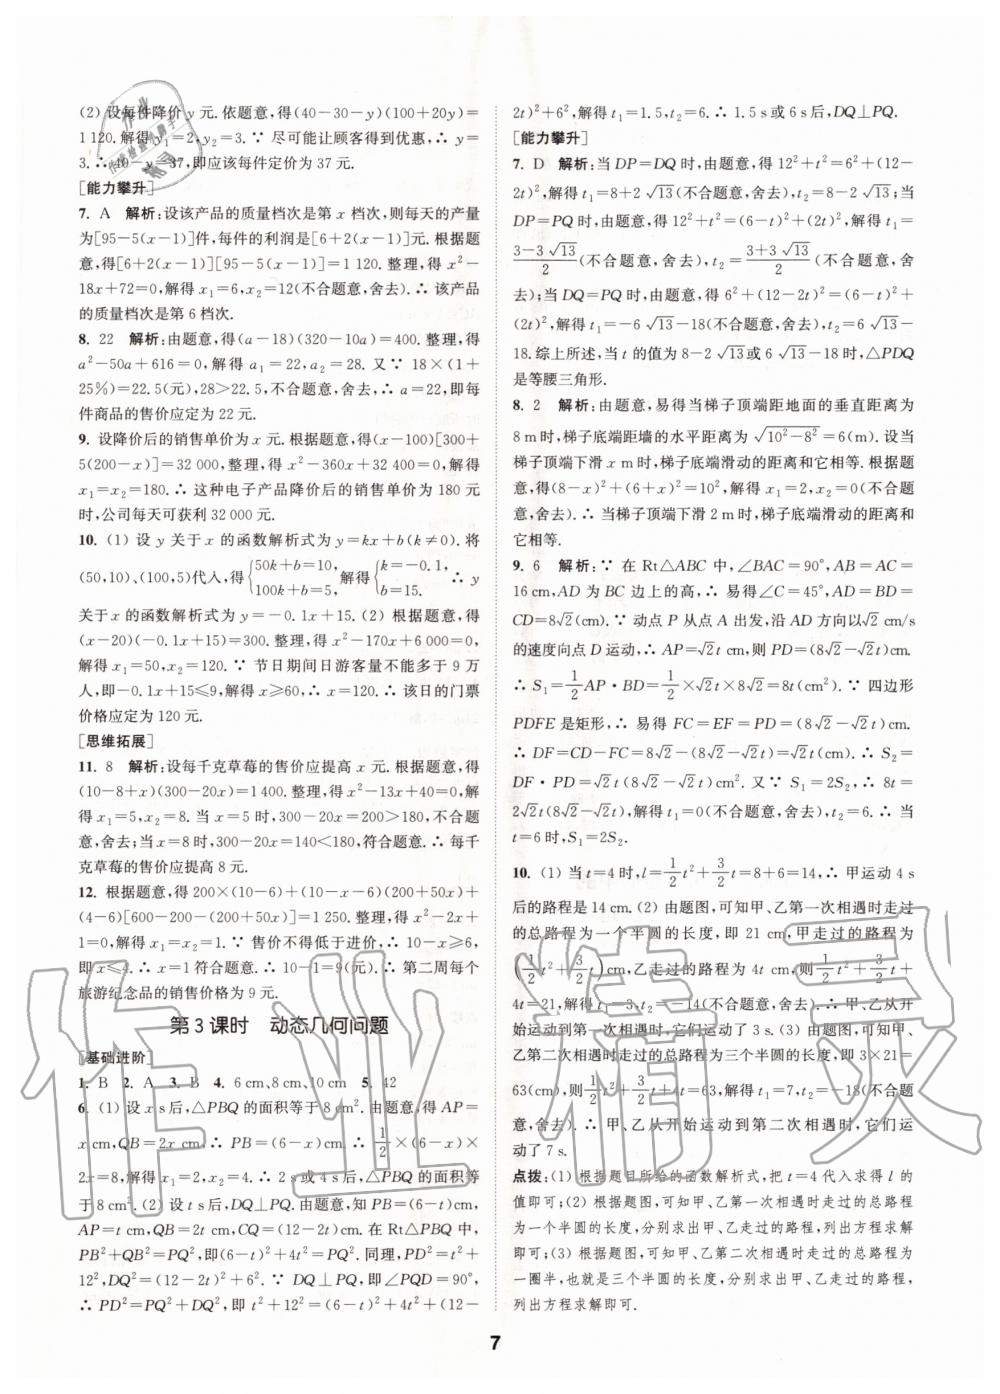 (2) 设每件降价 y 元. 依题意,得(40-30-y)(100+20y)=
1 120. 解得 y₁=2,y₂=3. ∵ 尽可能让顾客得到优惠,∴ y=
3. ∴ 40-y=37,即应该每件定价为 37 元.
[能力攀升]
7. A 解析:设该产品的质量档次是第 x 档次,则每天的产量
为[95-5(x-1)]件,每件的利润是[6+2(x-1)]元. 根据题
意,得[6+2(x-1)][95-5(x-1)]=1 120. 整理,得 x²-
18x+72=0,解得 x₁=6,x₂=12(不合题意,舍去). ∴ 该产品
的质量档次是第 6 档次.
8. 22 解析:由题意,得(a-18)(320-10a)=400. 整理,得
a²-50a+616=0,解得 a₁=22,a₂=28. 又∵ 18×(1+
25%)=22.5(元),28>22.5,不合题意,舍去,∴ a=22,即每
件商品的售价应定为 22 元.
9. 设降价后的销售单价为 x 元. 根据题意,得(x-100)[300+
5(200-x)]=32 000,整理,得 x²-360x+32 400=0,解得
x₁=x₂=180. ∴ 这种电子产品降价后的销售单价为 180 元
时,公司每天可获利 32 000 元.
10. (1) 设 y 关于 x 的函数解析式为 y=kx+b(k≠0). 将
(50,10)、(100,5)代入,得{50k+b=10, 100k+b=5, 解得{k=-0.1, b=15. ∴ y
关于 x 的函数解析式为 y=-0.1x+15. (2) 根据题意,得
(x-20)(-0.1x+15)=300. 整理,得 x²-170x+6 000=0,
解得 x₁=50,x₂=120. ∵ 节日期间日游客量不能多于 9 万
人,即-0.1x+15≤9,∴ x≥60. ∴ x=120. ∴ 该日的门票
价格应定为 120 元.
[思维拓展]
11. 8 解析:设每千克草莓的售价应提高 x 元. 根据题意,得
(10-8+x)(300-20x)=1 400. 整理,得 x²-13x+40=0,解得
x₁=5,x₂=8. 当 x=5 时,300-20x=200>180,不合题
意,舍去;当 x=8 时,300-20x=140<180,符合题意. ∴ 每千
克草莓的售价应提高 8 元.
12. 根据题意,得 200×(10-6)+(10-x-6)(200+50x)+
(4-6)[600-200-(200+50x)]=1 250. 整理,得 x²-2x+
1=0,解得 x₁=x₂=1. ∵ 售价不得低于进价,∴ 10-x≥6,
即 x≤4. ∴ x=1 符合题意. ∴ 10-1=9(元). ∴ 第二周每个
旅游纪念品的销售价格为 9 元.
第 3 课时 动态几何问题
[基础进阶]
1. B 2. A 3. B 4. 6 cm、8 cm、10 cm 5. 42
6. (1) 设 x s后,△PBQ 的面积等于 8 cm². 由题意,得 AP=
x cm,QB=2x cm,∴ PB=(6-x)cm. ∴ 1/2×(6-x)×
2x=8,解得 x₁=2,x₂=4. ∴ 2 s 或 4 s后,△PBQ 的面积等
于 8 cm². (2) 设 t s后,DQ⊥PQ. 由题意,知 PB=(6-t)cm,
AP=t cm,QB=2t cm,CQ=(12-2t)cm. 在 Rt△PBQ 中,
PB²+QB²=PQ²,即(6-t)²+4t²=PQ². 同理,PD²=t²+
12²,DQ²=(12-2t)²+6². ∵ DQ⊥PQ,即∠PQD=90°,
∴ PD²=PQ²+DQ²,即 t²+12²=(6-t)²+4t²+(12-
2t)²+6²,解得 t₁=1.5,t₂=6. ∴ 1.5 s或 6 s后,DQ⊥PQ.
[能力攀升]
7. D 解析:当 DP=DQ 时,由题意,得 12²+t²=6²+(12-
2t)²,解得 t₁=8+2√13(不合题意,舍去),t₂=8-2√13;当
DP=PQ 时,由题意,得 12²+t²=(6-t)²+(2t)²,解得 t₁=
(3-3√13)/2(不合题意,舍去),t₂=(3+3√13)/2(不合题意,舍
去);当 DQ=PQ 时,由题意,得 6²+(12-2t)²=(6-t)²+
(2t)²,解得 t₁=-6√13-18(不合题意,舍去),t₂=6√13-
18. 综上所述,当 t 的值为 8-2√13或 6√13-18 时,△PDQ
是等腰三角形.
8. 2 解析:由题意,易得当梯子顶端距地面的垂直距离为
8 m时,梯子底端距墙的水平距离为√(10²-8²)=6(m). 设当
梯子顶端下滑 x m时,梯子底端滑动的距离和它相等. 根据题
意,得(8-x)²+(6+x)²=10²,解得 x₁=2,x₂=0(不合题
意,舍去). ∴ 当梯子顶端下滑 2 m时,梯子底端滑动的距离和
它相等.
9. 6 解析:∵ 在 Rt△ABC 中,∠BAC=90°,AB=AC=
16 cm,AD 为 BC 边上的高,∴ 易得∠C=45°,AD=BD=
CD=8√2(cm). ∵ 动点 P 从点 A 出发,沿 AD 方向以√2 cm/s
的速度向点 D 运动,∴ AP=√2t cm,则 PD=(8√2-√2t)cm.
∴ S₁=1/2AP·BD=1/2×√2t×8√2=8t(cm²). ∵ 四边形
PDFE 是矩形,∴ 易得 FC=EF=PD=(8√2-√2t)cm.
∴ DF=CD-FC=8√2-(8√2-√2t)=√2t(cm). ∴ S₂=
DF·PD=√2t(8√2-√2t)cm². 又∵ S₁=2S₂,∴ 8t=
2√2t(8√2-√2t),解得 t₁=0(不合题意,舍去),t₂=6. ∴ 当
t=6时,S₁=2S₂.
10. (1) 当 t=4 时,l=1/2t²+3/2t=8+6=14,∴ 甲运动 4 s
后的路程是 14 cm. (2) 由题图,可知甲、乙第一次相遇时走过
的总路程为一个半圆的长度,即 21 cm,甲走过的路程为
(1/2t²+3/2t)cm,乙走过的路程为 4t cm,则1/2t²+3/2t+
4t=21,解得 t₁=3,t₂=-14(不合题意,舍去). ∴ 甲、乙从开
始运动到第一次相遇时,它们运动了 3 s. (3) 由题图,可知甲、
乙第二次相遇时走过的总路程为三个半圆的长度,即 3×21=
63(cm),则1/2t²+3/2t+4t=63,解得 t₁=7,t₂=-18(不合题
意,舍去). ∴ 甲、乙从开始运动到第二次相遇时,它们运
动了 7 s.
点拨:(1) 根据题目所给的函数解析式,把 t=4 代入求得 l 的
值即可;(2) 根据题图,可知甲、乙第一次相遇时走过的总路程
为一个半圆的长度,分别求出甲、乙走过的路程,列出方程求解
即可;(3) 根据题图,可知甲、乙第二次相遇时走过的总路程为
一圈半,也就是三个半圆的长度,分别求出甲、乙走过的路程,
列出方程求解即可.
7
作业精灵